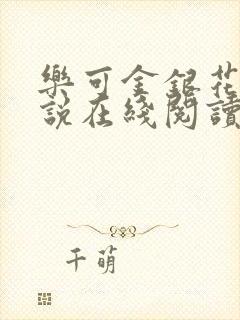 樂可金銀花
說在綫閱讀
千萌